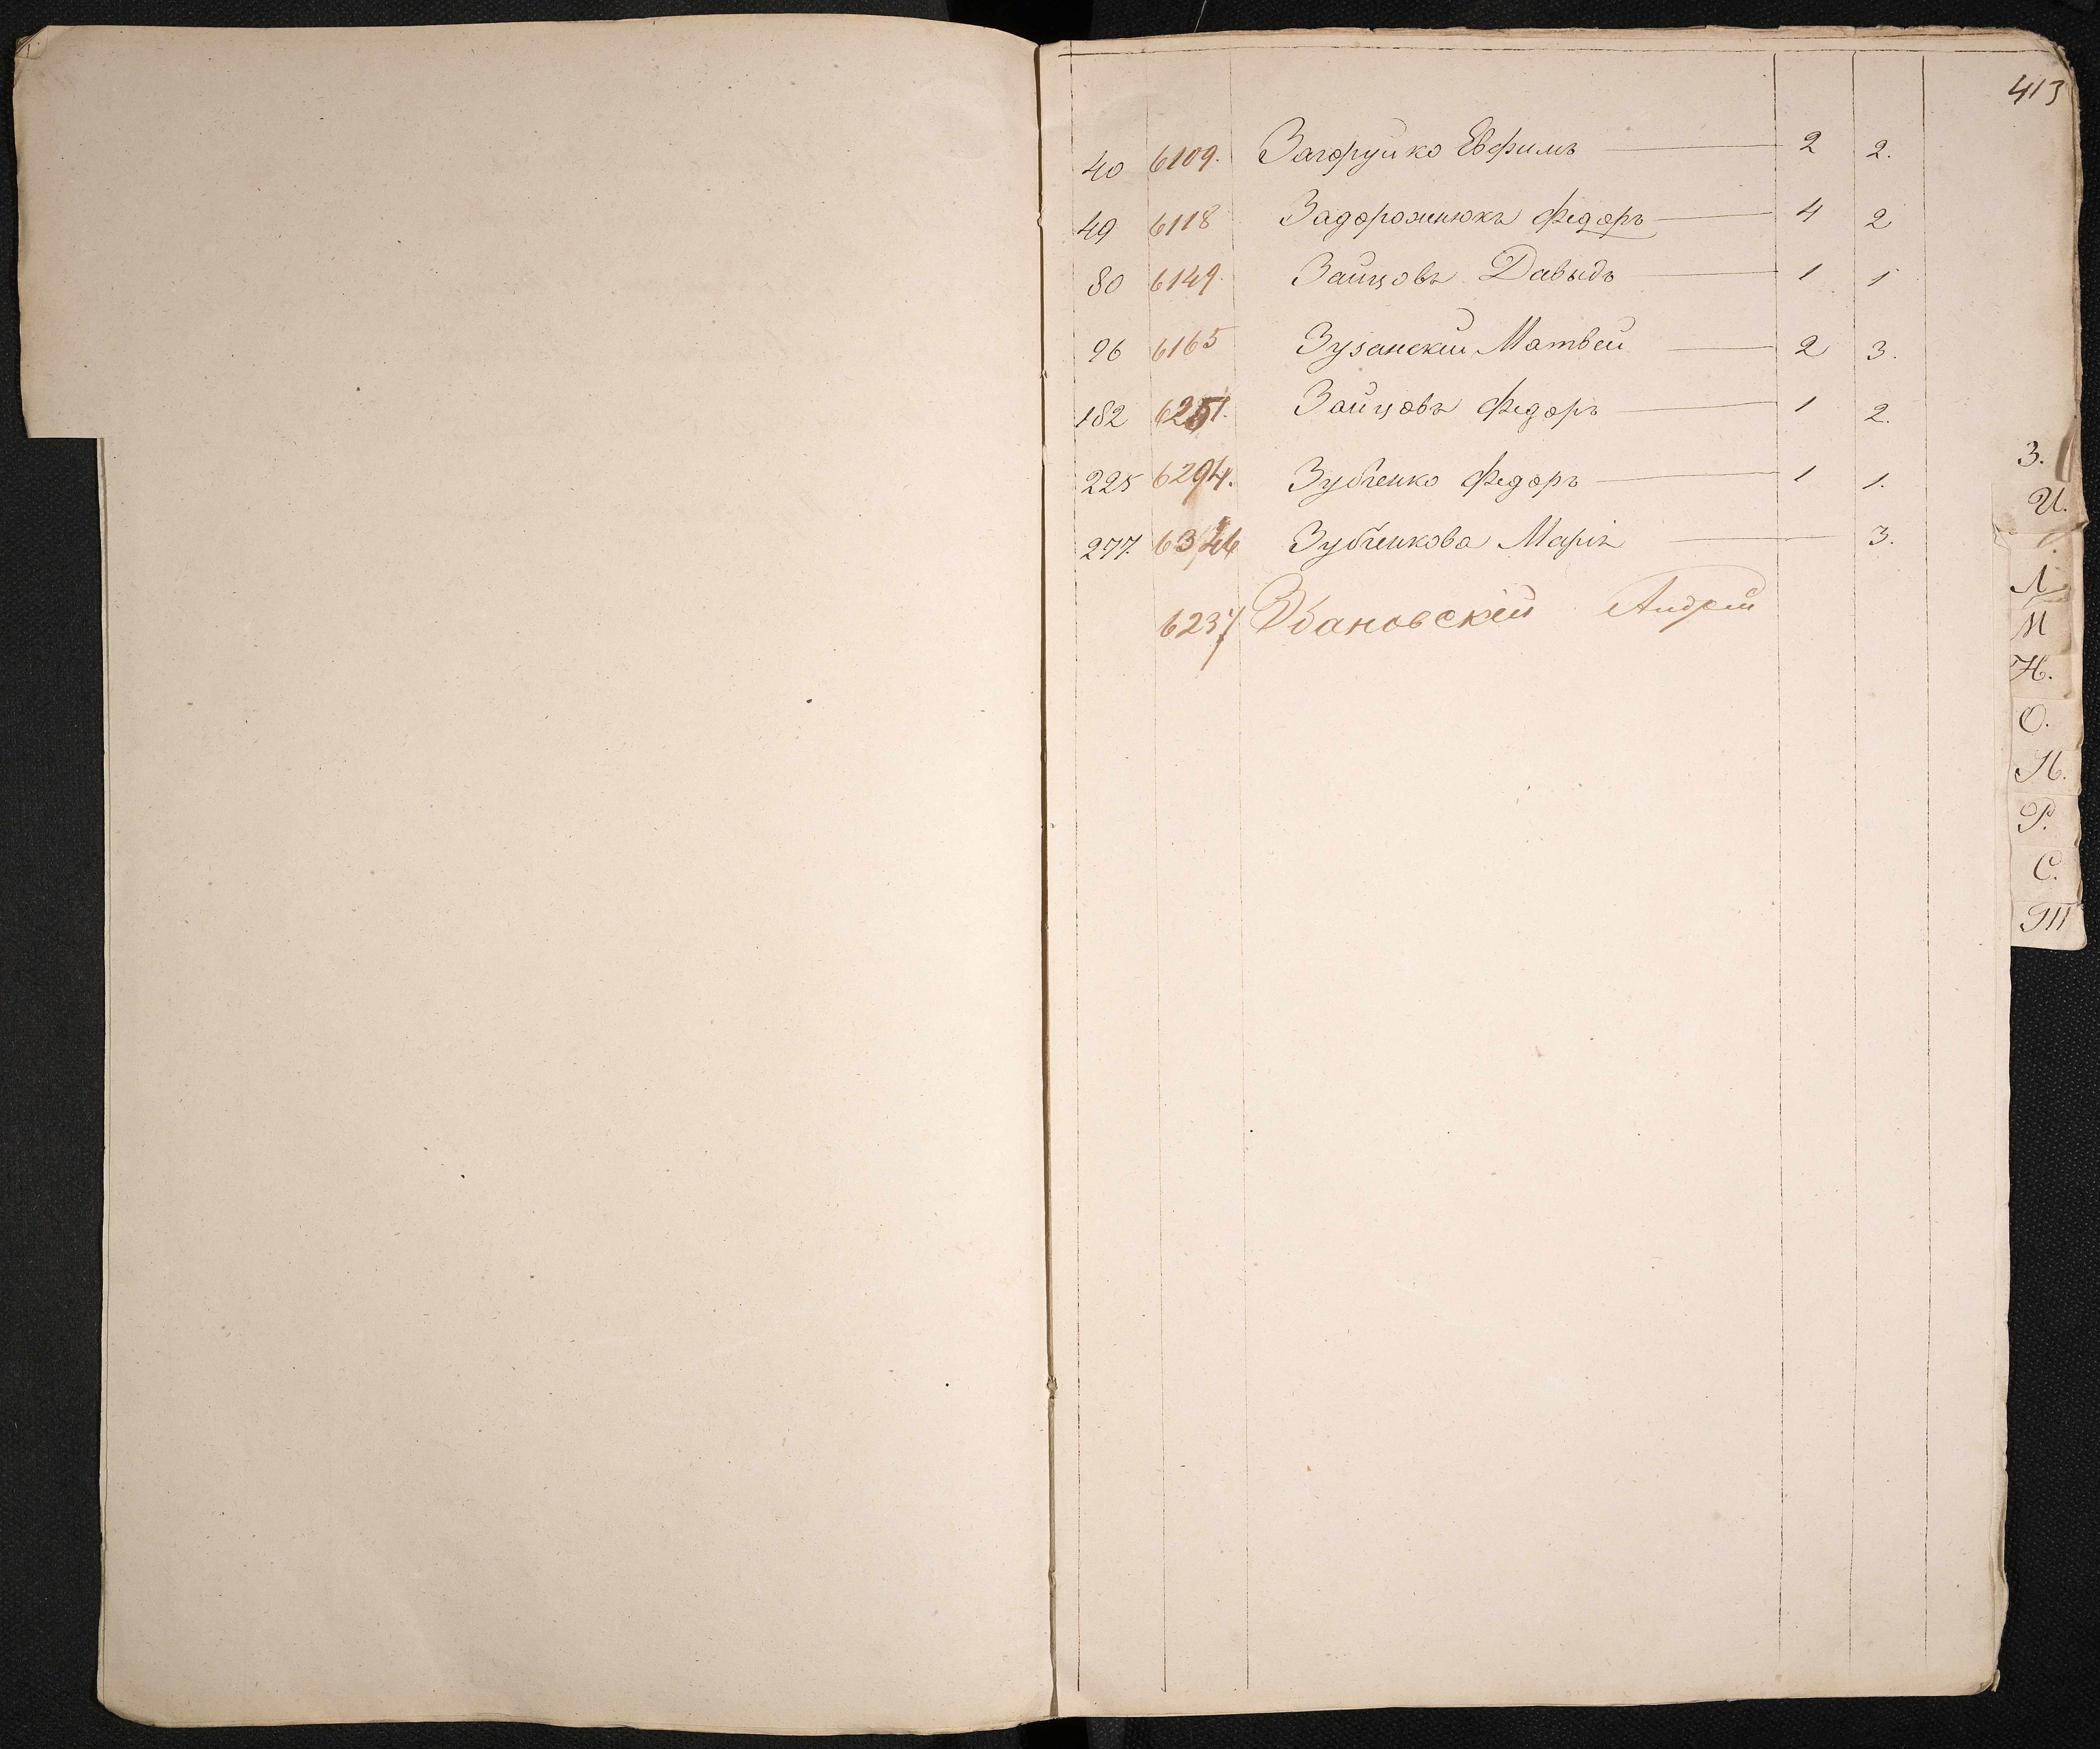 413
40 6109. Загоруйко Евфимъ 2 2.
49 6118 Задорожнюкъ Федоръ 4 2
80 6149. Зайцовъ Давыдъ 1 1
96 6165 Матвей 2 3.
182 6251. Зайцовъ Федоръ 1 2.
225 6294. Зубченко Федоръ 1 1.
277. 6346 Зубченкова Марія 3.
6237 Збановскій Андрей
З.
И.
Л
М
Н.
О.
П.
Р.
С.
Т